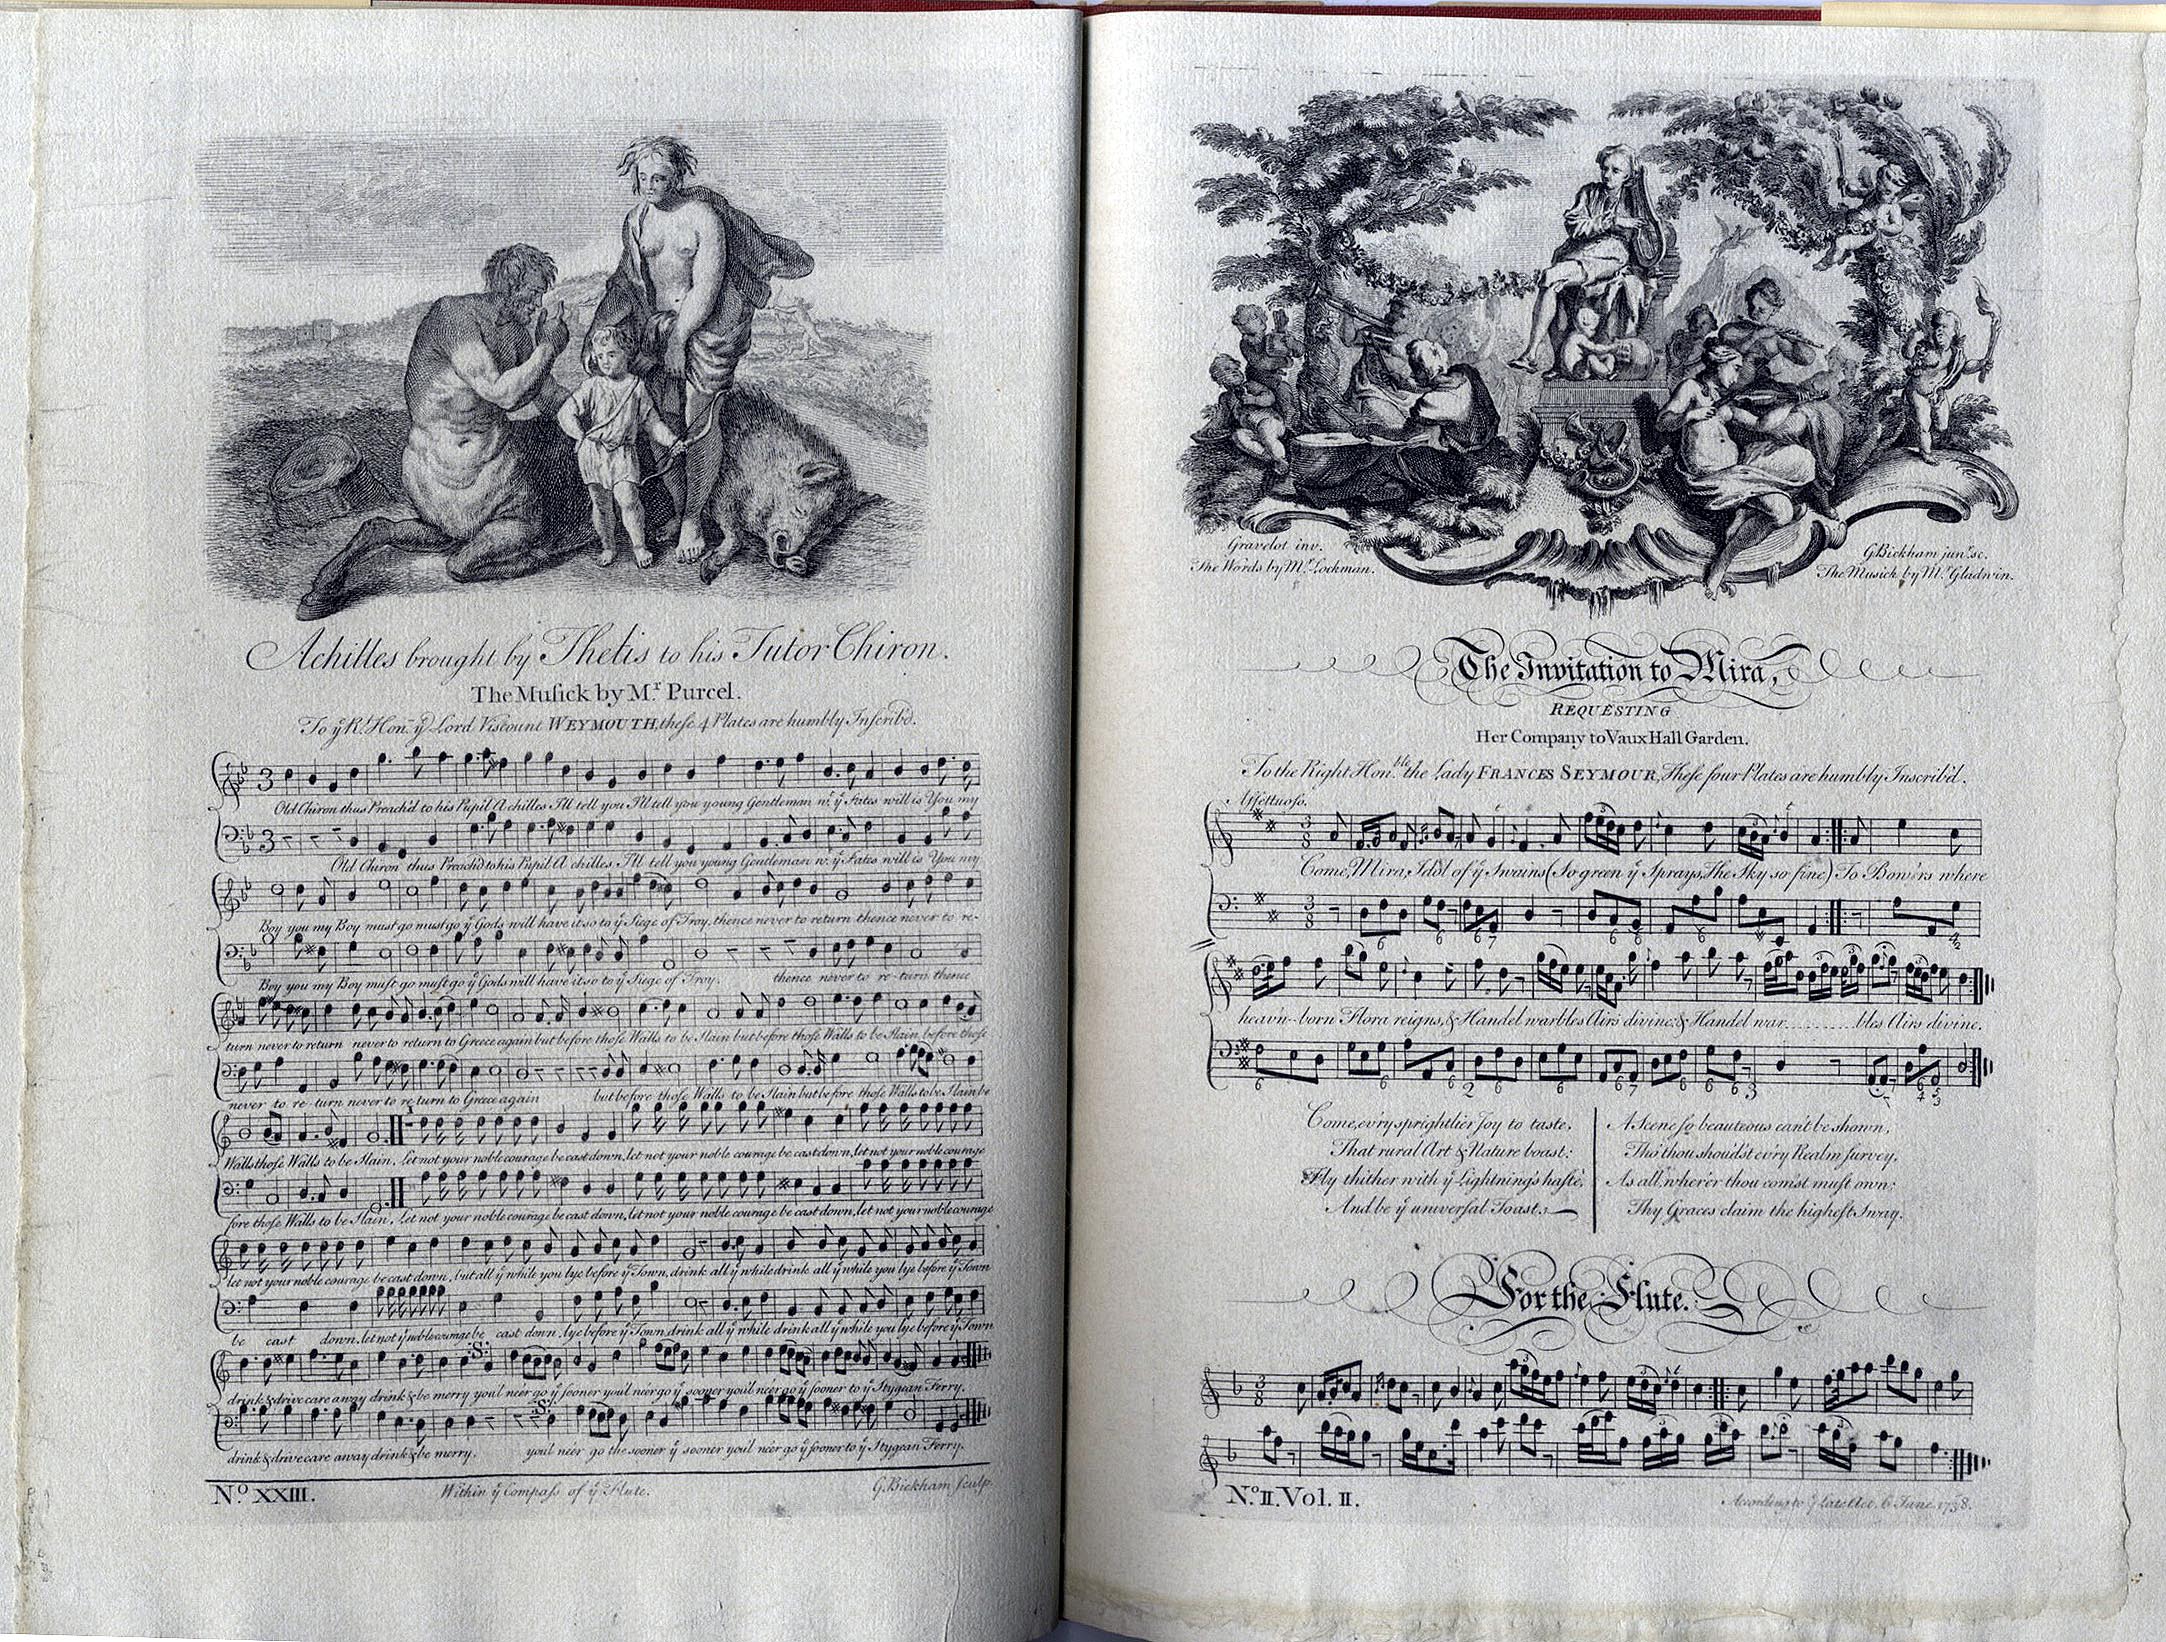 Achilles brought by Thetis to his Tutor Chiron.
The Musick by Mr. Purcel.
To ye Rt. Hon. ye Lord Viscount WEYMOUTH, these 4 Plates are humbly Inscrib'd.
Old Chiron thus Preach'd to his Pupil Achilles I'll tell you I'll tell you young Gentleman wt. ye Fates will is You my
Old Chiron thus Preach'd to his Pupil Achilles I'll tell you young Gentleman wt. ye Fates will is You my
Boy you my Boy must go must go ye Gods will have it so to ye Siege of Troy. thence never to return thence never to re-
Boy you my Boy must go must go ye Gods will have it so to ye Siege of Troy. thence never to re-turn thence
turn never to return never to return to Greece again but before those Walls to be Slain but before those Walls to be Slain before those
never to re-turn never to return to Greece again but before those Walls to be Slain but before those Walls to be Slain be
Walls those Walls to be Slain. Let not your noble courage be cast down, let not your noble courage be cast down, let not your noble courage
fore those Walls to be Slain. Let not your noble courage be cast down, let not your noble courage be cast down, let not your noble courage
let not your noble courage be cast down, but all ye while you lye before ye Town, drink all ye while drink all ye while you lye before ye Town
be cast down, let not ye noble courage be cast down, lye before ye Town, drink all ye while drink all ye while you lye before ye Town
:S:
drink & drive care away drink & be merry you'l ne'er go ye sooner you'l ne'er go ye sooner you'l ne'er go ye sooner to ye Stygean Ferry.
:S:
drink & drive care away drink & be merry. you'l ne'er go the sooner ye sooner you'l ne'er go ye sooner to ye Stygean Ferry.
No. XXIII. Within ye Compass of ye Flute. G. Bickham sculp.
Gravelot inv. G Bickham junr. sc.
The Words by Mr. Lockman. The Musick by Mr. Gladwin.
The Invitation to Mira,
REQUESTING
Her Company to Vaux Hall Garden.
To the Right Honble. the Lady FRANCES SEYMOUR, These four Plates are humbly Inscrib'd.
Affettuoso.
Come, Mira, Idol of ye Swains (So green ye Sprays, The Sky so fine) To Bow'rs where
heav'n-born Flora reigns, & Handel warbles Airs divine; & Handel war.........bles Airs divine.
Come, ev'ry sprightlier Joy to taste,
That rural Art & Nature boast:
Fly thither with ye Lightning's haste,
And be ye universal Toast.
A Scene so beauteous can't be shown,
Tho' thou shou'dst ev'ry Realm survey,
As all, where'er thou com'st must own;
Thy Graces claim the highest Sway.
For the Flute.
No. II. Vol. II. According to ye Late Act. 6 June 1738.